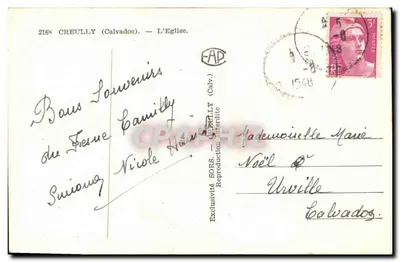 2168 CREULLY (Calvados). — L'Eglise.
CAP
Bons Souvenirs
du Fresne Camilly
Nicole
Exclusivité SORS. — CREULLY (Calv.)
Reproduction Interdite
1948
Mademoiselle Marie
Noël
Urville
Calvados